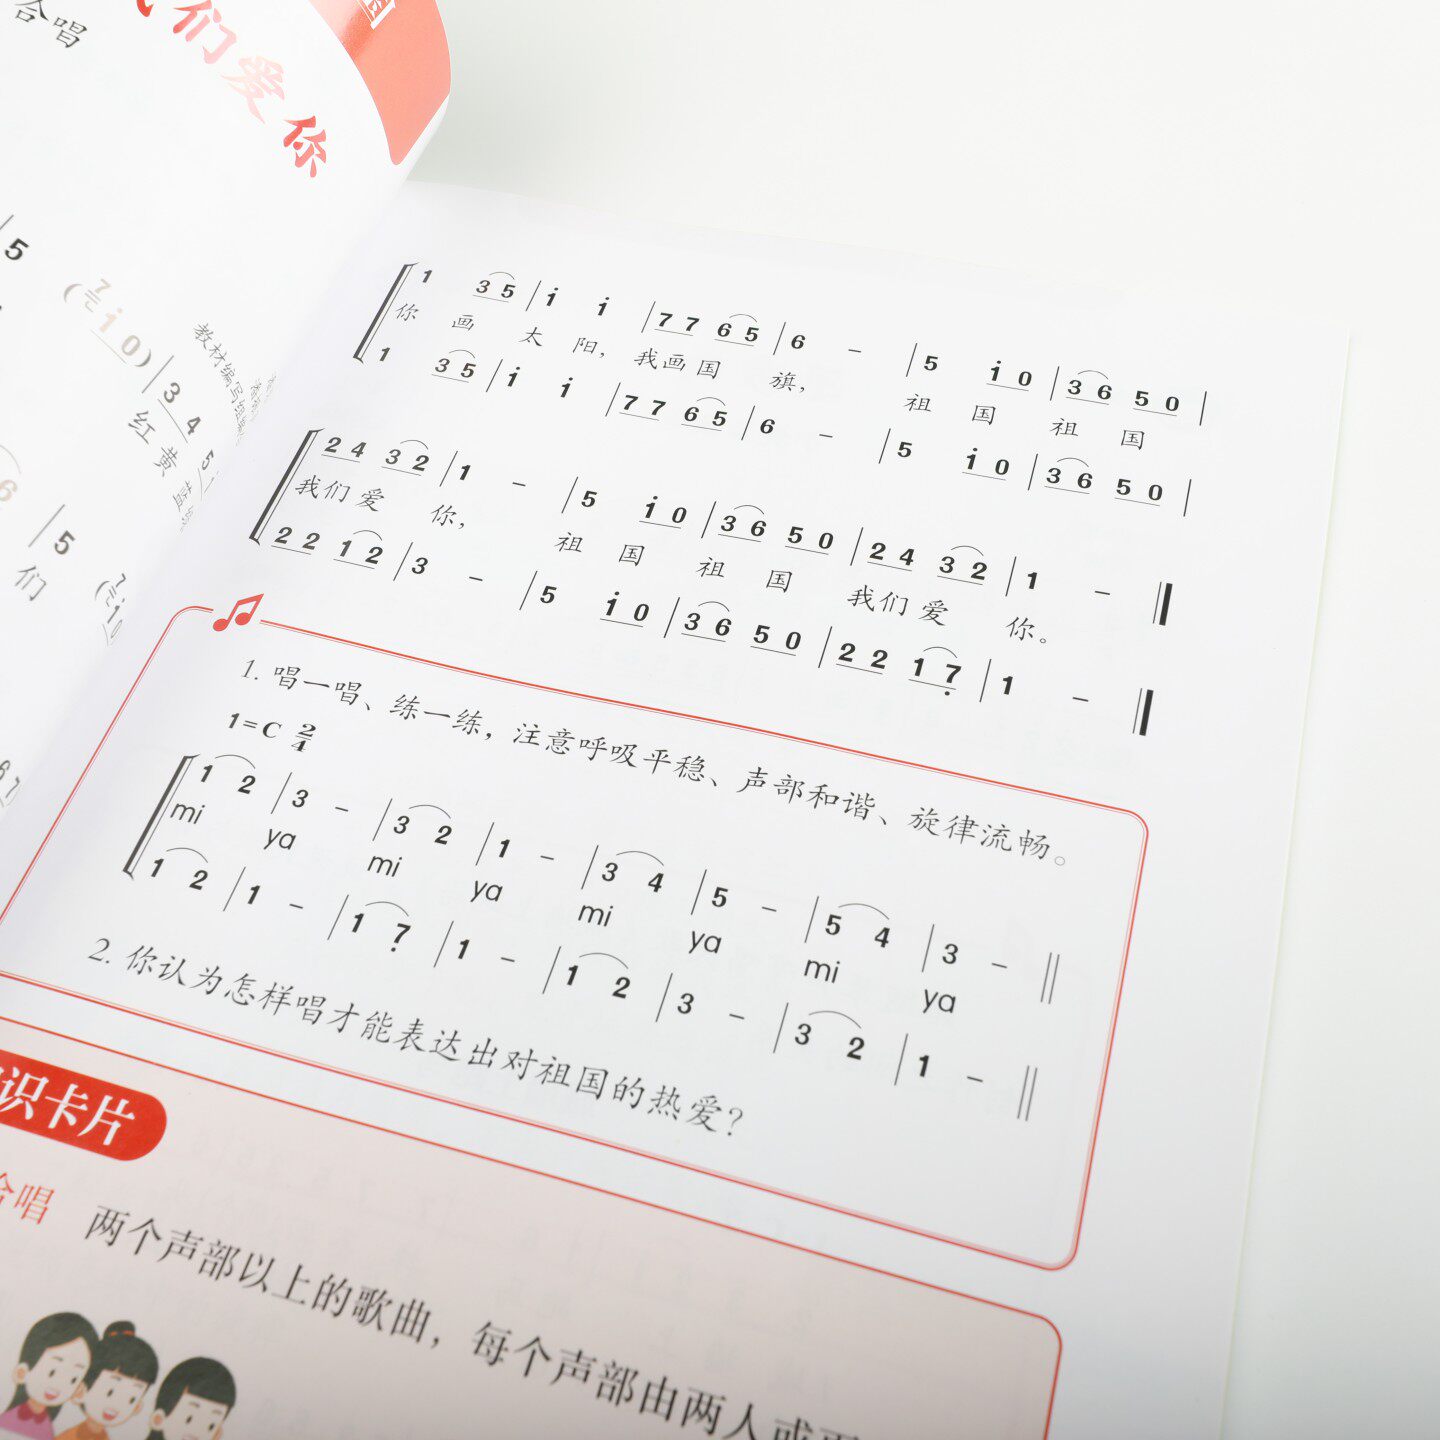 合唱
们爱你
5 (7 i 0) | 3 4
教材编写组
红 黄 蓝
6 | 5 (7 i 0
们
6 7
1 3 5 | i i | 7 7 6 5 | 6 – | 5 i 0 | 3 6 5 0 |
你 画 太 阳, 我画国 旗, 祖 国 祖 国
1 3 5 | i i | 7 7 6 5 | 6 – | 5 i 0 | 3 6 5 0 |
2 4 3 2 | 1 – | 5 i 0 | 3 6 5 0 | 2 4 3 2 | 1 – ‖
我们 爱 你, 祖 国 祖 国 我们 爱 你。
2 2 1 2 | 3 – | 5 i 0 | 3 6 5 0 | 2 2 1 7̣ | 1 – ‖
1. 唱一唱、练一练,注意呼吸平稳、声部和谐、旋律流畅。
1=C 2/4
1 2 | 3 – | 3 2 | 1 – | 3 4 | 5 – | 5 4 | 3 – ‖
mi ya mi ya mi ya mi ya
1 2 | 1 – | 1 7̣ | 1 – | 1 2 | 3 – | 3 2 | 1 – ‖
2. 你认为怎样唱才能表达出对祖国的热爱?
识卡片
合唱 两个声部以上的歌曲,每个声部由两人或两